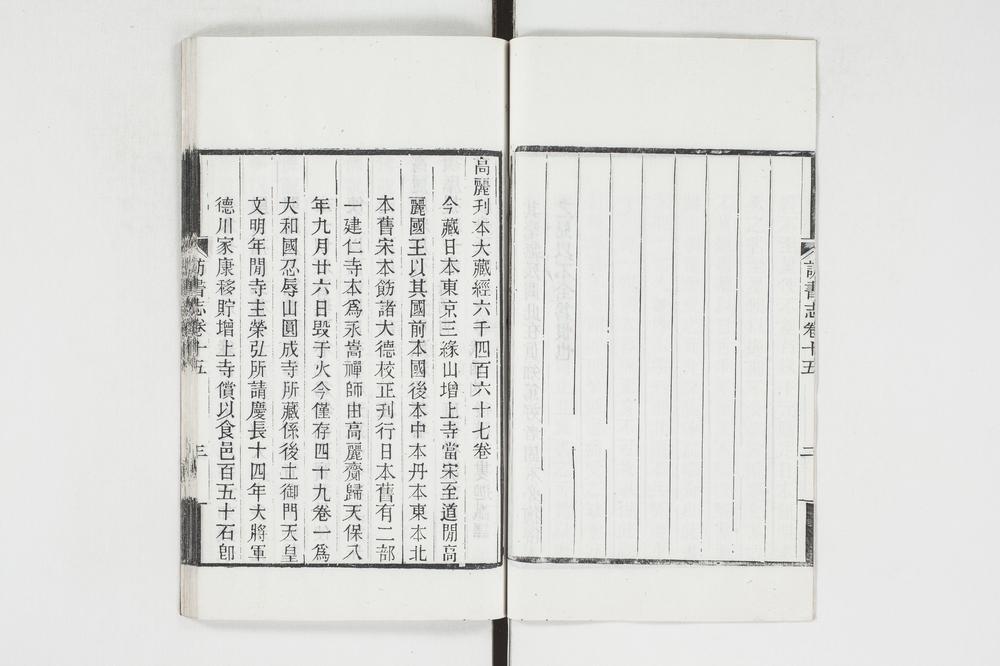 訪書志卷十五
二
高麗刊本大藏經六千四百六十七卷
今藏日本東京三緣山增上寺當宋至道閒高
麗國王以其國前本國後本中本丹本東本北
本舊宋本飭諸大德校正刊行日本舊有二部
一建仁寺本爲永嵩禪師由高麗齎歸天保八
年九月廿六日毀于火今僅存四十九卷一爲
大和國忍辱山圓成寺所藏係後土御門天皇
文明年閒寺主榮弘所請慶長十四年大將軍
德川家康移貯增上寺償以食邑百五十石卽
訪書志卷十五
三